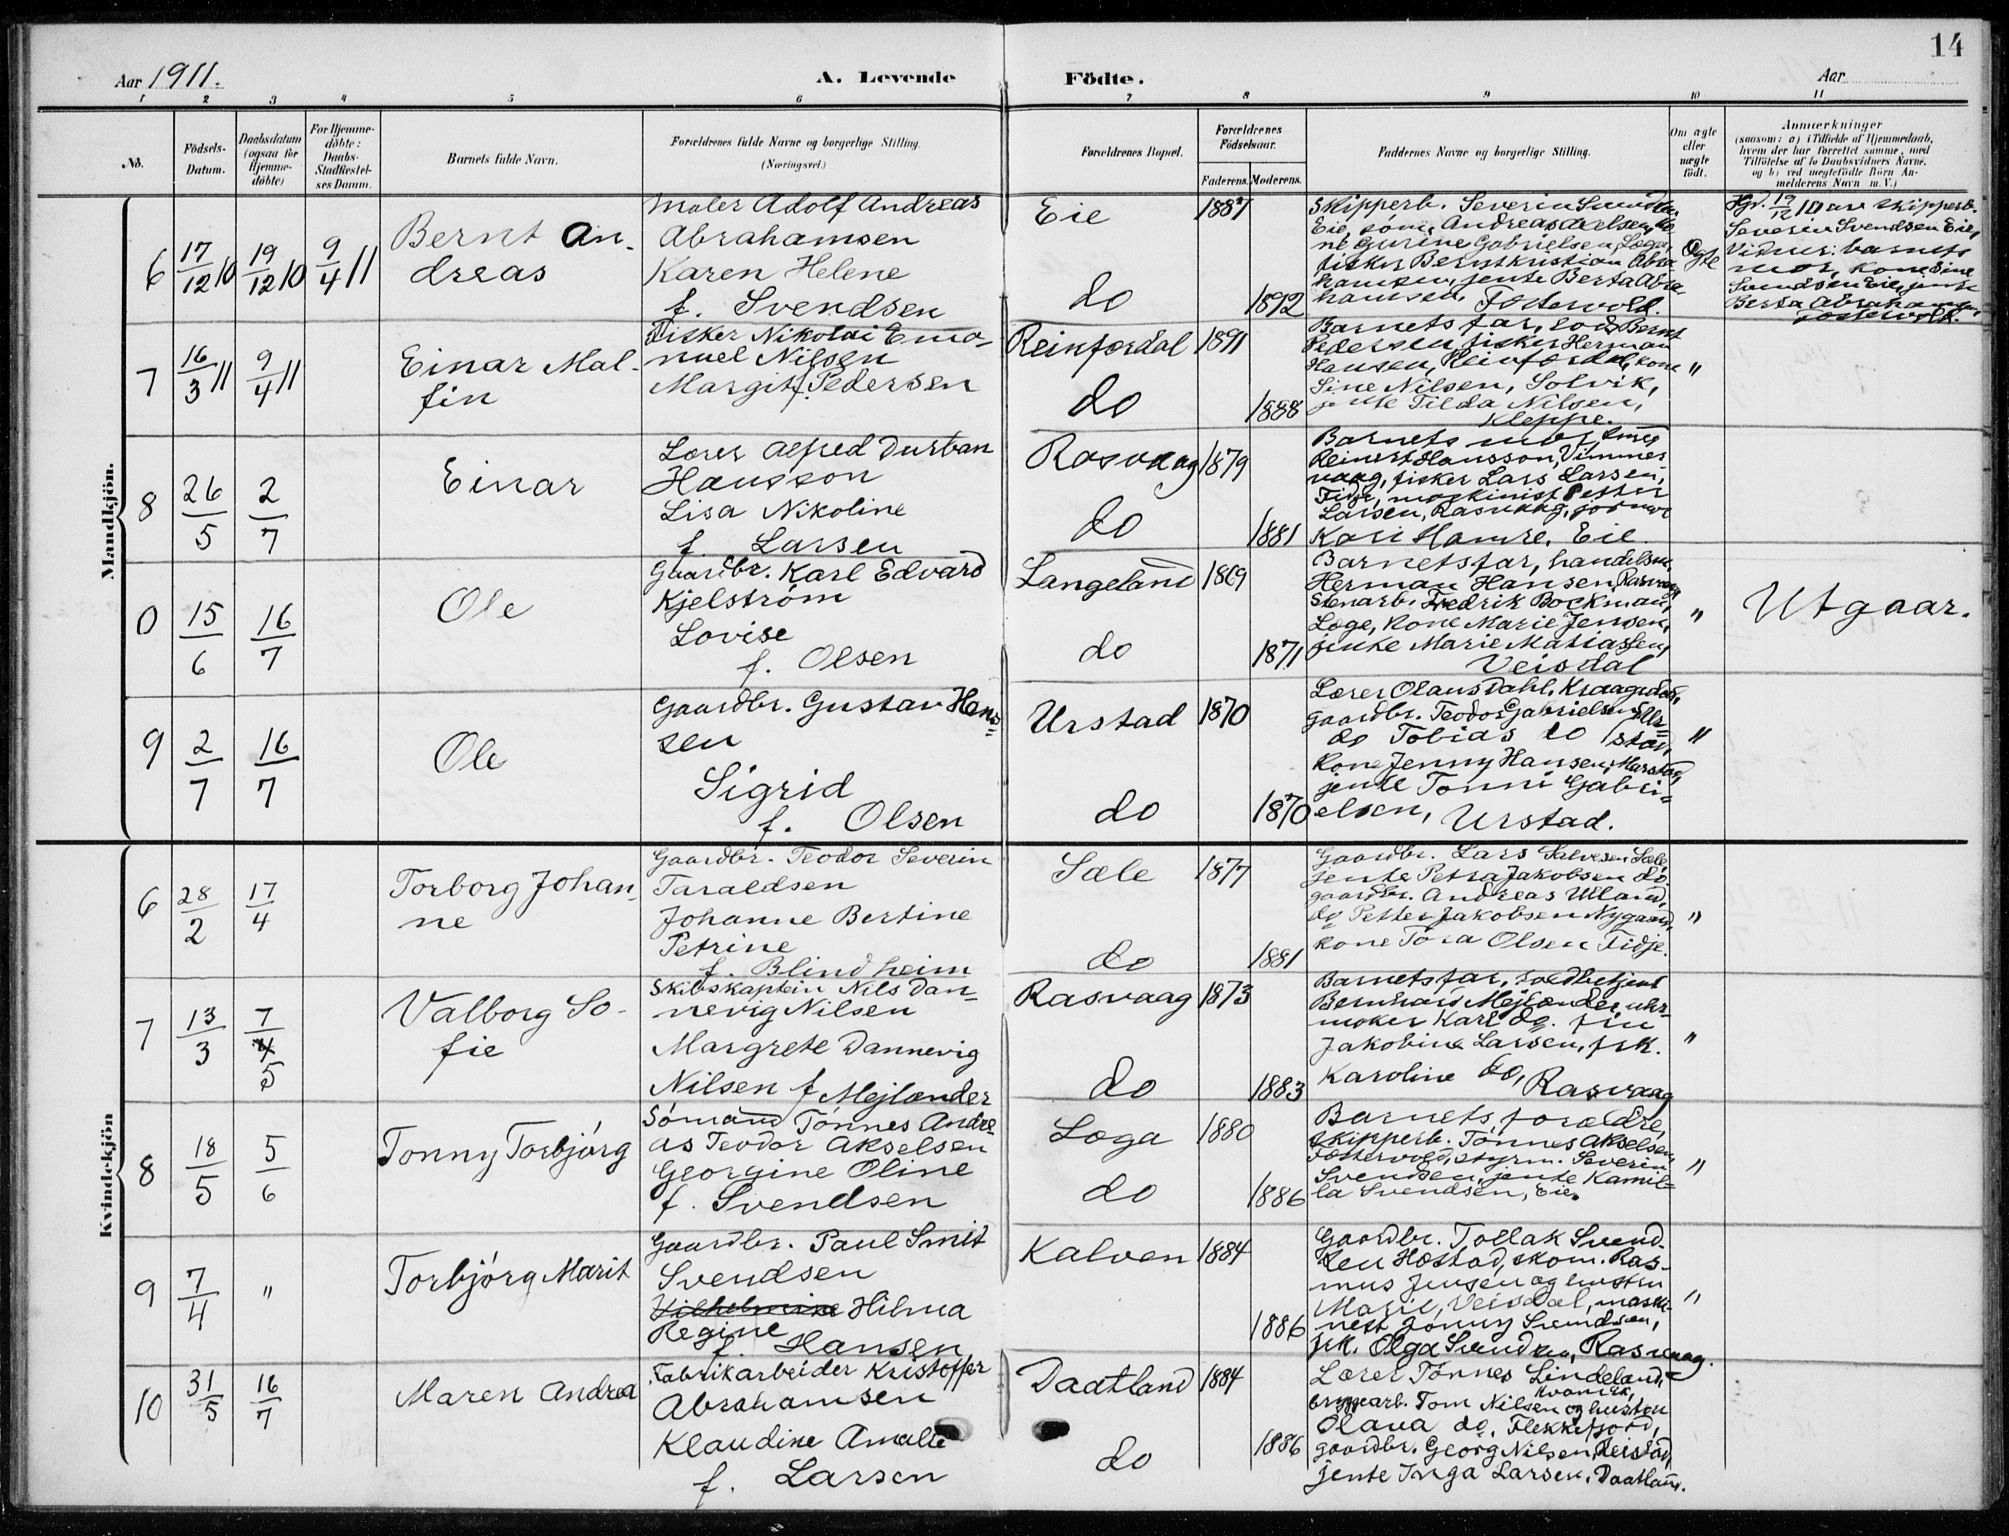 14
Aar 1911.
A. Levende
Födte.
Aar
1 2 3 4 5 6 7 8 9 10 11
No.
Födsels-
Datum.
Daabsdatum
(ogsaa for
Hjemme-
döbte)
For Hjemme-
döbte:
Daabs-
Stadfæstel-
ses Datum.
Barnets fulde Navn.
Forældrenes fulde Navne og borgerlige Stilling.
(Næringsvei.)
Forældrenes Bopæl.
Forældrenes
Födselsaar.
Faderens. Moderens.
Faddernes Navne og borgerlige Stilling.
Om ægte
eller
uægte
födt.
Anmærkninger
(saasom: a) i Tilfælde af Hjemmedaab,
hvem der har forrettet samme, med
Tilföielse af to Daabsvidners Navne,
og b) ved uægtefödte Börn An-
melderens Navn m. V.)
Mandkjön.
6
17/12 10
19/12 10
9/4 11
Bernt An-
dreas
Maler Adolf Andreas
Abrahamsen
Karen Helene
f. Svendsen
Eie
do
1887
1892
Skipperb. Severin Svendsen
Eie, søm. Andreas Axelsen, ko-
ne Gurine Gabrielsen, Loga,
fisker Bernt Kristian Abra-
hamsen, jente Berta Abra-
hamsen Fostervold.
Ægte
Hjd. 19/12 10 av skipperb.
Severin Svendsen Eie,
Vidner: barnets
mor, kone Sine
Svendsen Eie, jente
Berta Abrahamsen,
Fostervold.
7
16/3 11
9/4 11
Einar Mal-
fin
Fisker Nikolai Ema-
nuel Nilsen
Margit f. Pedersen
Reinfordal
do
1891
1888
Barnets far, lods Bernt
Pedersen, fisker Herman
Hansen, Reinfordal, kone
Sine Nilsen, Solvik,
jente Tilda Nilsen,
Kleppe.
"
8
26/5
2/7
Einar
Lærer Alfred Durban
Hansson
Lisa Nikoline
f. Larsen
Rasvaag
do
1879
1881
Barnets mor, smed
Reinert Hansson, Vimmer
vaag, fisker Lars Larsen,
Fidje, maskinist Petter
Larsen, Rasvaag, jordmor
Kari Hamre, Eie.
0
15/6
16/7
Ole
Gaardbr. Karl Edvard
Kjelström
Lovise
f. Olsen
Langeland
do
1869
1871
Barnets far, handelsm.
Herman Hansen, Rasvaag
Stenarb. Fredrik Bockman,
Loge, kone Marie Jensen,
jente Marie Matiassen,
Veisdal
"
Utgaar.
9
2/7
16/7
Ole
Gaardbr. Gustav Han-
sen
Sigrid
f. Olsen
Urstad
do
1870
1870
Lærer Olaus Dahl, Kraagedal,
gaardbr. Teodor Gabrielsen, Ur-
do Tobias do stad,
kone Jenny Hansen, Marstad,
jente Tonni Gabri-
elsen, Urstad.
"
Kvindekjön
6
28/2
17/4
Torborg Johan-
ne
Gaardbr. Teodor Severin
Taraldsen
Johanne Bertine
Petrine
f. Blindheim
Sæle
do
1877
1881
Gaardbr. Lars Salvesen Sæle
jente Petra Jakobsen do
gaardbr. Andreas Ulland,
do Petter Jakobsen Nygaard,
kone Tora Olsen Fidje.
"
7
13/3
7/4
5
Valborg So-
fie
Skibskaptein Nils Dan-
nevig Nilsen
Margrete Dannevig
Nilsen f. Mejlænder
Rasvaag
do
1873
1883
Barnets far, toldbetjent
Bernhard Mejlænder, uhr-
maker Karl do. frue
Jakobine Larsen, frk.
Karoline do, Rasvaag
"
8
18/5
5/6
Tonny Torbjørg
Sømand Tønnes Andre-
as Teodor Akselsen
Georgine Oline
f. Svendsen
Loga
do
1880
1886
Barnets, forældre,
skipperb. Tønnes Akselsen,
Fostervold, styrm. Severin
Svendsen, jente Kamil-
la Svendsen, Eie.
"
9
7/4
"
Torbjørg Marit
Gaardbr. Paul Smit
Svendsen
Vilhelmine Hilma
Regine
f. Hansen
Kalven
1884
1886
Gaardbr. Tollak Svend-
sen Hæstad, skom. Ras-
mus Jensen og hustru
Marie, Veisdal, maski-
nist Jonny Svendsen,
frk. Olga Svendsen, Rasvaag.
"
10
31/5
16/7
Maren Andrea
Fabrikarbeider Kristoffer
Abrahamsen
Klaudine Amalie
f. Larsen
Daatland
do
1884
1886
Lærer Tønnes Lindeland,
Kvanvik,
bryggearb. Tom Nilsen og hustru
Olava do, Flekkefjord,
gaardbr. Georg Nilsen, Reistad,
jente Inga Larsen, Daatland.